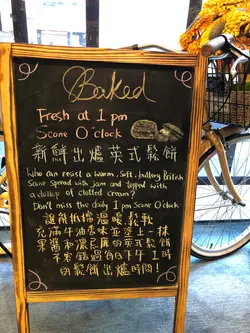 Baked
Fresh at 1 pm
Scone O'clock
新鮮出爐英式鬆餅
Who can resist a warm, soft, buttery British
Scone spread with jam and topped with
a dollop of clotted cream?
Don't miss the daily 1 pm Scone O'clock
誰能抵擋溫暖鬆軟
充滿牛油香味並塗上一抹
果醬和濃忌廉的英式鬆餅
不要錯過每日下午1時
的鬆餅出爐時間!